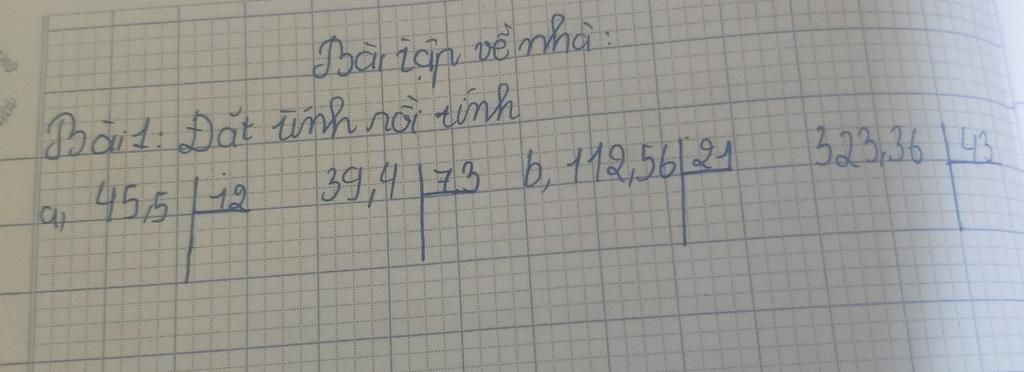 Bài tập về nhà:
Bài 1: Đặt tính rồi tính
a, 45,5 12 39,4 73 b, 112,56 21 323,36 43